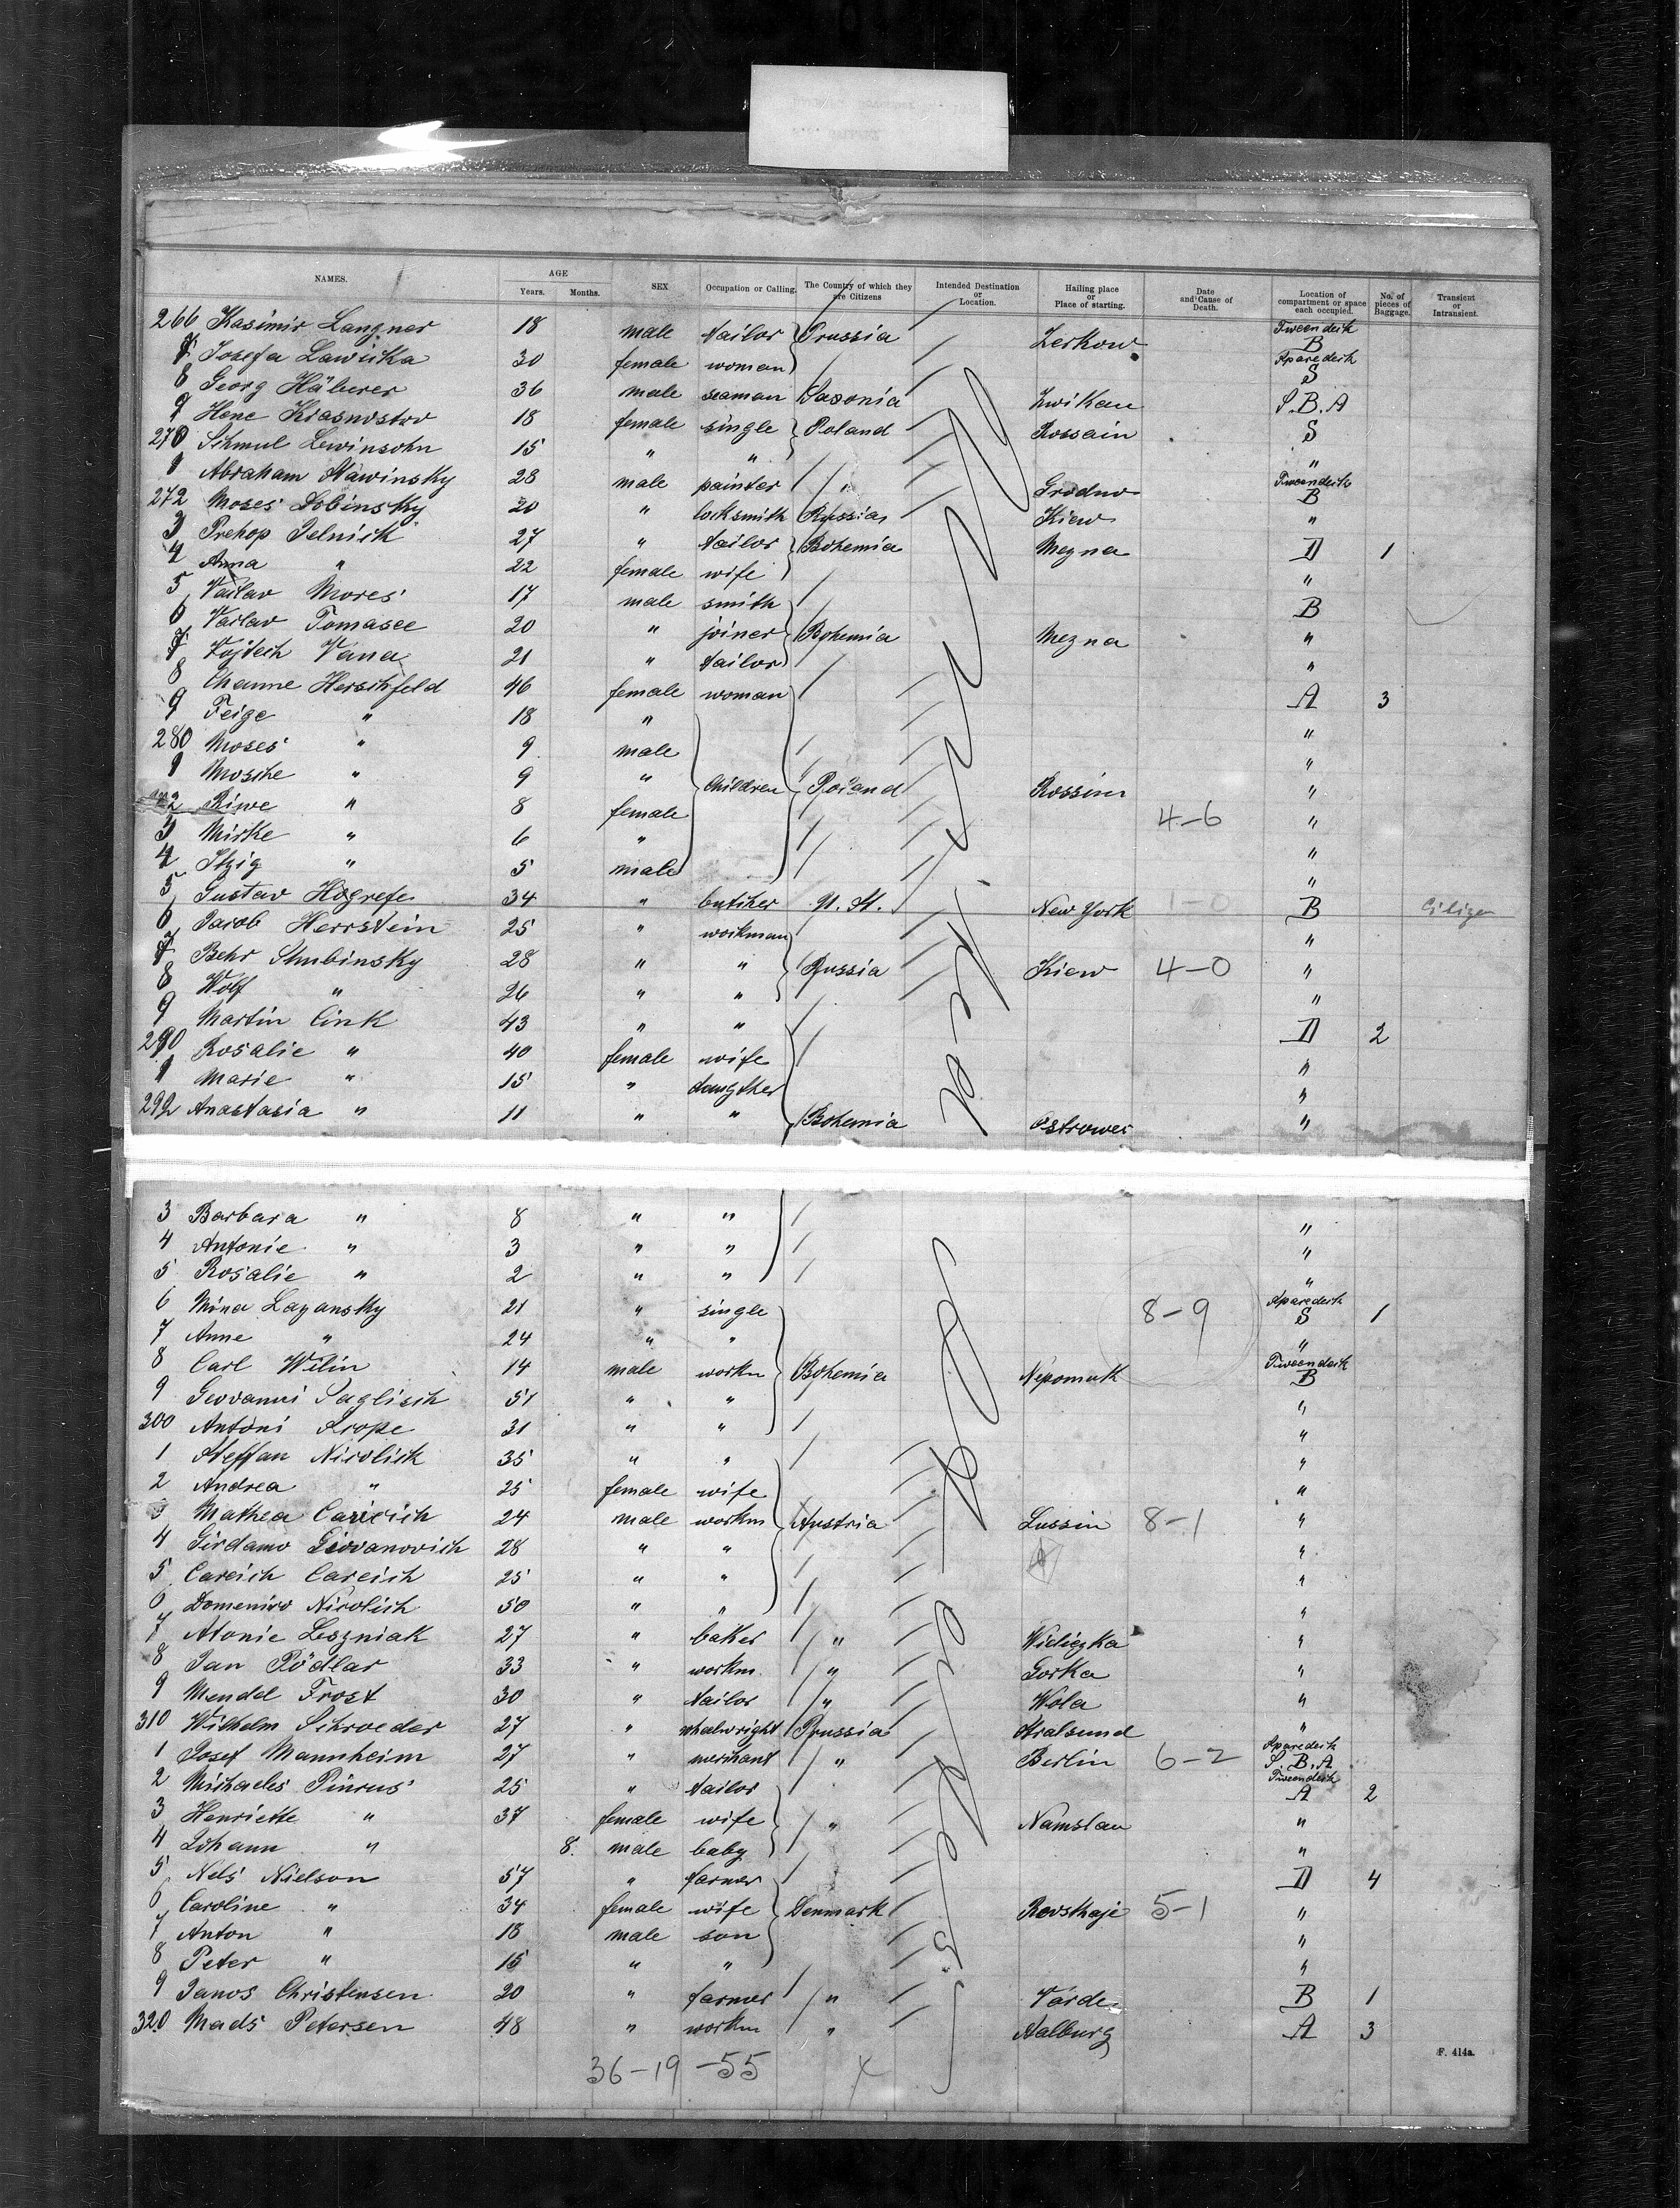 NAMES. AGE Years. Months. SEX Occupation or Calling. The Country of which they are Citizens Intended Destination or Location. Hailing place or Place of starting. Date and Cause of Death. Location of compartment or space each occupied. No. of pieces of Baggage. Transient or Intransient.
266 Kasimir Langner 18 male tailor Prussia Zerkow Tweendeck B
7 Josefa Lawicka 30 female woman Sparedeck S
8 Georg Häberer 36 male seaman Saxonia Zwikau S. B. A
9 Hene 18 female single Poland Rossain S
270 Schmul Lewinsohn 15 " " "
1 Abraham Stawinsky 28 male painter " Grodno Tweendeck B
272 Moses Dobinsky 20 " locksmith Russia Kiew "
3 Prehop Jelnick 27 " tailor Bohemia Mezna D 1
4 Anna " 22 female wife "
5 Vaclav Mores 17 male smith B
6 Vaclav Tomasec 20 " joiner Bohemia Mezna "
7 Vojtech Vana 21 " tailor "
8 Channe Herschfeld 46 female woman A 3
9 Feige " 18 " "
280 Moses " 9 male "
1 Mosche " 9 " children Poland Rossien "
2 Riwe " 8 female 4-6 "
3 Mirke " 6 " "
4 Itzig " 5 male "
5 Gustav Hogrefe 34 " butcher U. St. New York 1-0 B Citizen
6 Jacob Herrstein 25 " workman "
7 Behr Stubinsky 28 " " Russia Kiew 4-0 "
8 Wolf " 26 " " "
9 Martin Cink 43 " " D 2
290 Rosalie " 40 female wife "
1 Marie " 15 " daugther "
292 Anastasia " 11 " " Bohemia Ostrowec "
3 Barbara " 8 " " "
4 Antonie " 3 " " "
5 Rosalie " 2 " " "
6 Mina Lazansky 21 " single 8-9 Sparedeck S 1
7 Anne " 24 " " "
8 Carl Wilin 14 male workm Bohemia Nepomuk Tweendeck B
9 Geovanni Paglisch 51 " " "
300 Antoni Krope 31 " " "
1 Steffan Nicolich 35 " " "
2 Andrea " 25 female wife "
3 Mathea Caricich 24 male workm Austria Lussin 8-1 "
4 Girdamo Giovanovich 28 " " "
5 Careich Careich 25 " " "
6 Domenico Nicolich 50 " " "
7 Atonie Leszniak 27 " baker " Wieliczka "
8 Jan Pödlar 33 " workm. " Gorka "
9 Mendel Frost 30 " tailor " Wola "
310 Wilhelm Schroeder 27 " wheelwright Prussia Stralsund "
1 Josef Mannheim 27 " merchant " Berlin 6-2 Sparedeck S. B. A
2 Michaelis Pincus 25 " tailor Tweendeck A 2
3 Henriette " 37 female wife " Namslau "
4 Johann " 8. male baby "
5 Nels Nielson 57 " farmer D 4
6 Caroline " 34 female wife Denmark Rovsthaje 5-1 "
7 Anton " 18 male son "
8 Peter " 15 " " "
9 Janos Christensen 20 " farmer " Varde B 1
320 Mads Petersen 48 " workm " Aalburg A 3
F. 414a.
36-19 -55 x